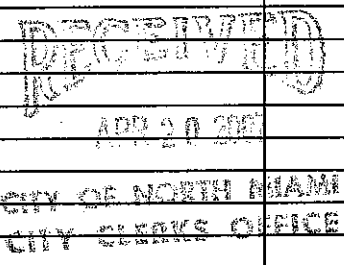 RECEIVED
APR 20
CITY OF NORTH MIAMI
CITY CLERKS OFFICE